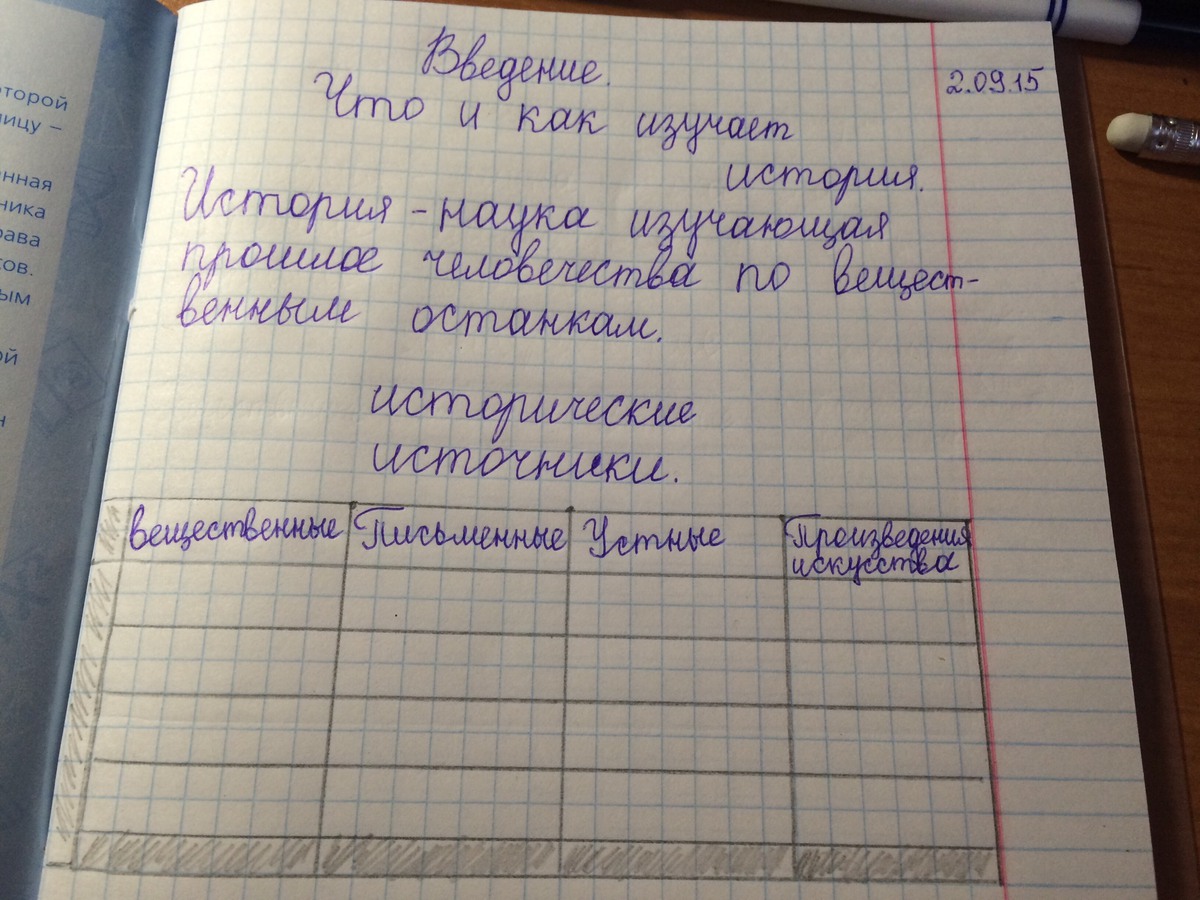 оторой
ницу –
нная
ника
рава
ков.
ым
ой
н
Введение.
2.09.15
Что и как изучает
история.
История – наука изучающая
прошлое человечества по вещест-
венным останкам.
исторические
источники.
вещественные Письменные Устные Произведения
искусства